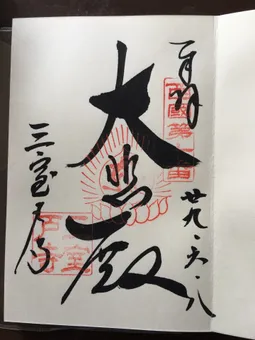 奉拝
廿九、六、八
西國第十番
大悲殿
三室戸寺